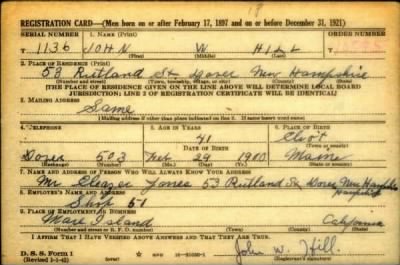 REGISTRATION CARD—(Men born on or after February 17, 1897 and on or before December 31, 1921)
SERIAL NUMBER 1. NAME (Print) ORDER NUMBER
1136 JOHN W HILL
(First) (Middle) (Last)
2. PLACE OF RESIDENCE (Print)
53 Rutland St Dover New Hampshire
[THE PLACE OF RESIDENCE GIVEN ON THE LINE ABOVE WILL DETERMINE LOCAL BOARD
JURISDICTION; LINE 2 OF REGISTRATION CERTIFICATE WILL BE IDENTICAL]
3. MAILING ADDRESS
Same
[Mailing address if other than place indicated on line 2. If same insert word same]
4. TELEPHONE 5. AGE IN YEARS 6. PLACE OF BIRTH
41 Eliot
DATE OF BIRTH (Town or county)
Dover 503 Feb 29 1900 Maine
(Exchange) (Number) (Mo.) (Day) (Yr.) (State or country)
7. NAME AND ADDRESS OF PERSON WHO WILL ALWAYS KNOW YOUR ADDRESS
Mr Eleazer Jones 53 Rutland St Dover New Hampshire
8. EMPLOYER'S NAME AND ADDRESS
Ship 51
9. PLACE OF EMPLOYMENT OR BUSINESS
Mare Island California
(Number and street or R. F. D. number) (Town) (County) (State)
I AFFIRM THAT I HAVE VERIFIED ABOVE ANSWERS AND THAT THEY ARE TRUE.
D. S. S. Form 1
(Revised 1-1-42) John W. Hill.
(Registrant's signature)